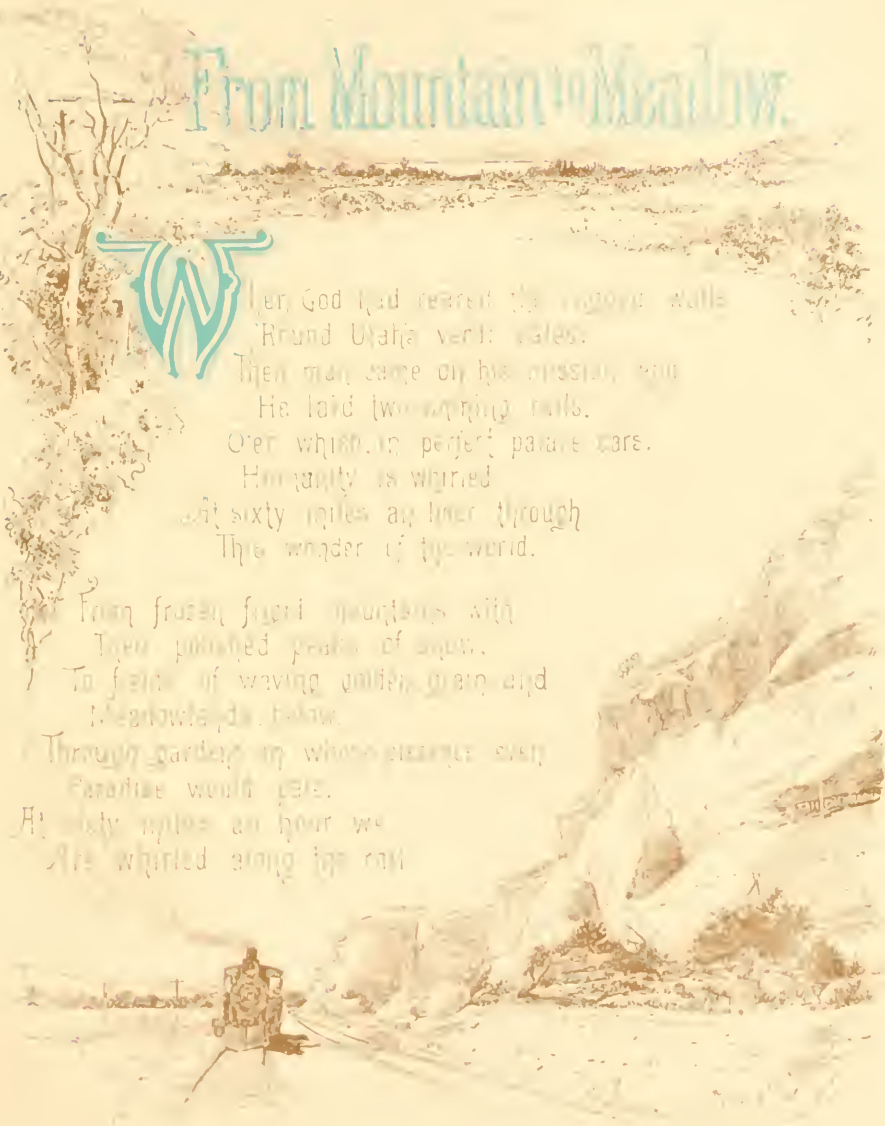 From Mountain to Meadow.
When God had reared the rugged walls
'Round Utah's verdt vales,
Then man came on his mission and
He laid two shining rails,
O'er which, in perfect palace cars,
Humanity is whirled
At sixty miles an hour through
This wonder of the world.
From frozen mountains with
Their polished peaks of snow,
To fields of waving golden grain and
Meadowlands below.
Through gardens in whose even
Paradise would pale,
At sixty miles an hour we
Are whirled along the rail